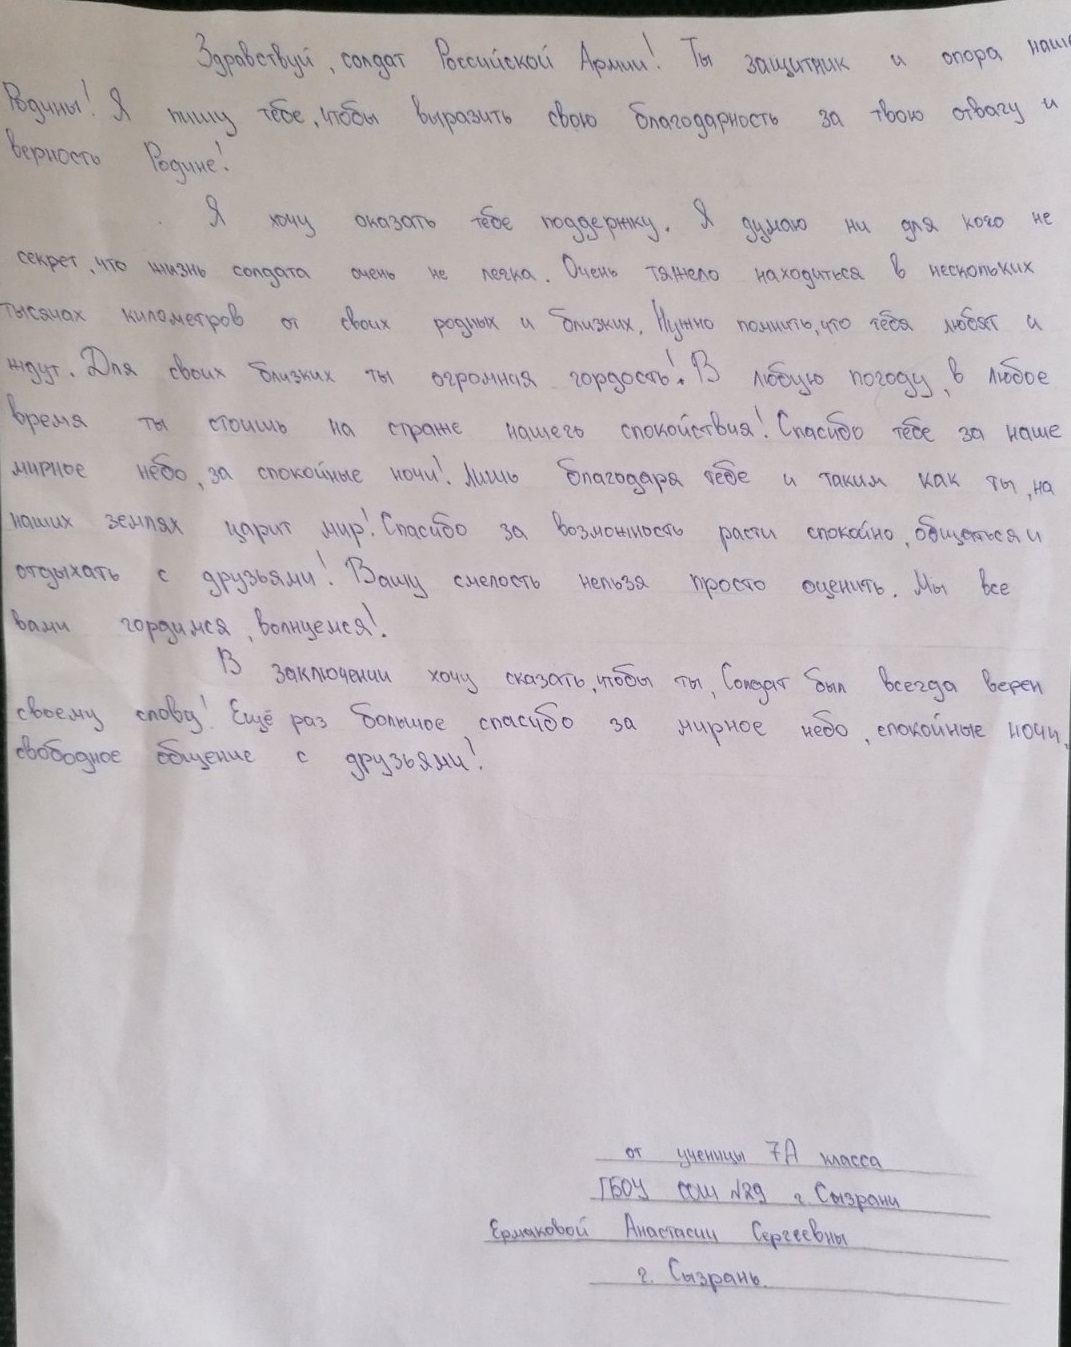 Здравствуй, солдат Российской Армии! Ты защитник и опора наше
Родины! Я пишу тебе, чтобы выразить свою благодарность за твою отвагу и
верность Родине!
Я хочу оказать тебе поддержку. Я думаю ни для кого не
секрет, что жизнь солдата очень не легка. Очень тяжело находиться в нескольких
тысячах километров от своих родных и близких. Нужно помнить, что тебя любят и
ждут. Для своих близких ты огромная гордость! В любую погоду, в любое
время ты стоишь на страже нашего спокойствия! Спасибо тебе за наше
мирное небо, за спокойные ночи! Лишь благодаря тебе и таким как ты, на
наших землях царит мир! Спасибо за возможность расти спокойно, общаться и
отдыхать с друзьями! Вашу смелость нельзя просто оценить. Мы все
вами гордимся, волнуемся!
В заключении хочу сказать, чтобы ты, Солдат был всегда верен
своему слову! Ещё раз большое спасибо за мирное небо, спокойные ночи,
свободное общение с друзьями!
от ученицы 7А класса
ГБОУ СОШ №29 г. Сызрани
Ермаковой Анастасии Сергеевны
г. Сызрань.